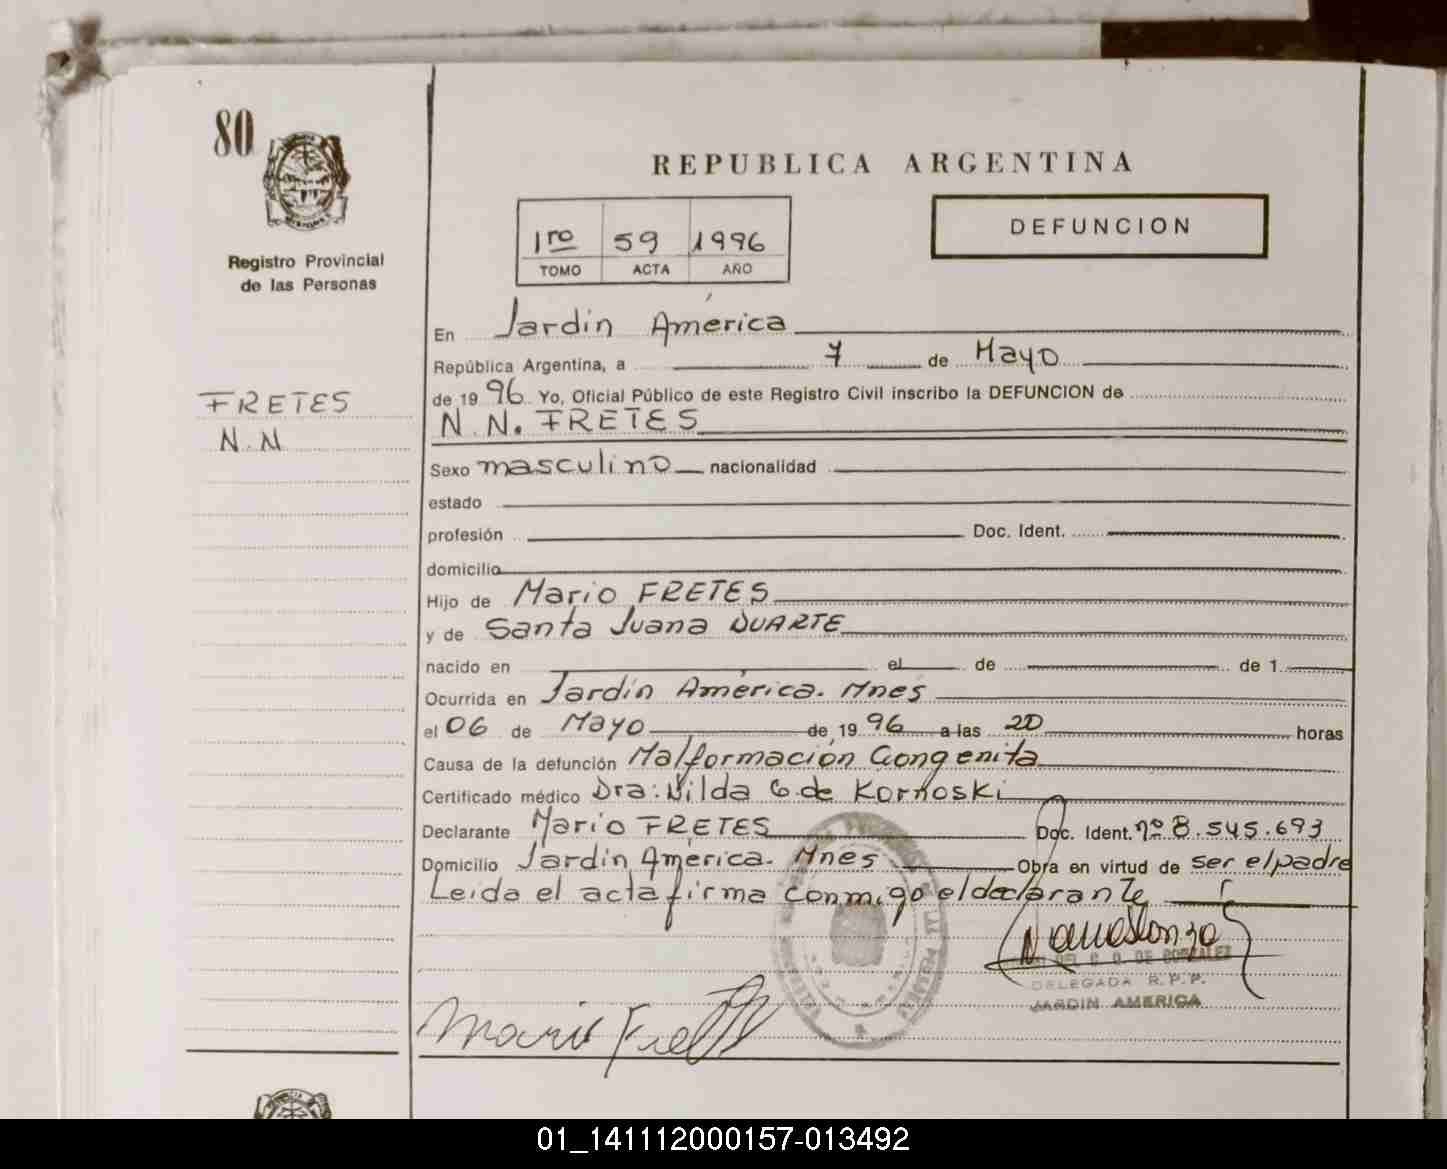 80
REPUBLICA ARGENTINA
1ro 59 1996
TOMO ACTA AÑO
DEFUNCION
Registro Provincial
de las Personas
FRETES
N.N
En Jardín América
República Argentina, a 7 de Mayo
de 1996 Yo, Oficial Público de este Registro Civil inscribo la DEFUNCION de
N.N. FRETES
Sexo masculino nacionalidad
estado
profesión Doc. Ident.
domicilio
Hijo de Mario FRETES
y de Santa Juana DUARTE
nacido en el de de 1
Ocurrida en Jardín América. Mnes
el 06 de Mayo de 1996 a las 20 horas
Causa de la defunción Malformación Congenita
Certificado médico Dra: Nilda G. de Kornoski
Declarante Mario FRETES Doc. Ident. nº 8.545.693
Domicilio Jardín América. Mnes Obra en virtud de ser el padre
Leida el acta firma conmigo el declarante
DEL C. D. DE GONZALEZ
DELEGADA R.P.P.
JARDIN AMERICA
Mario Fretes
01_141112000157-013492